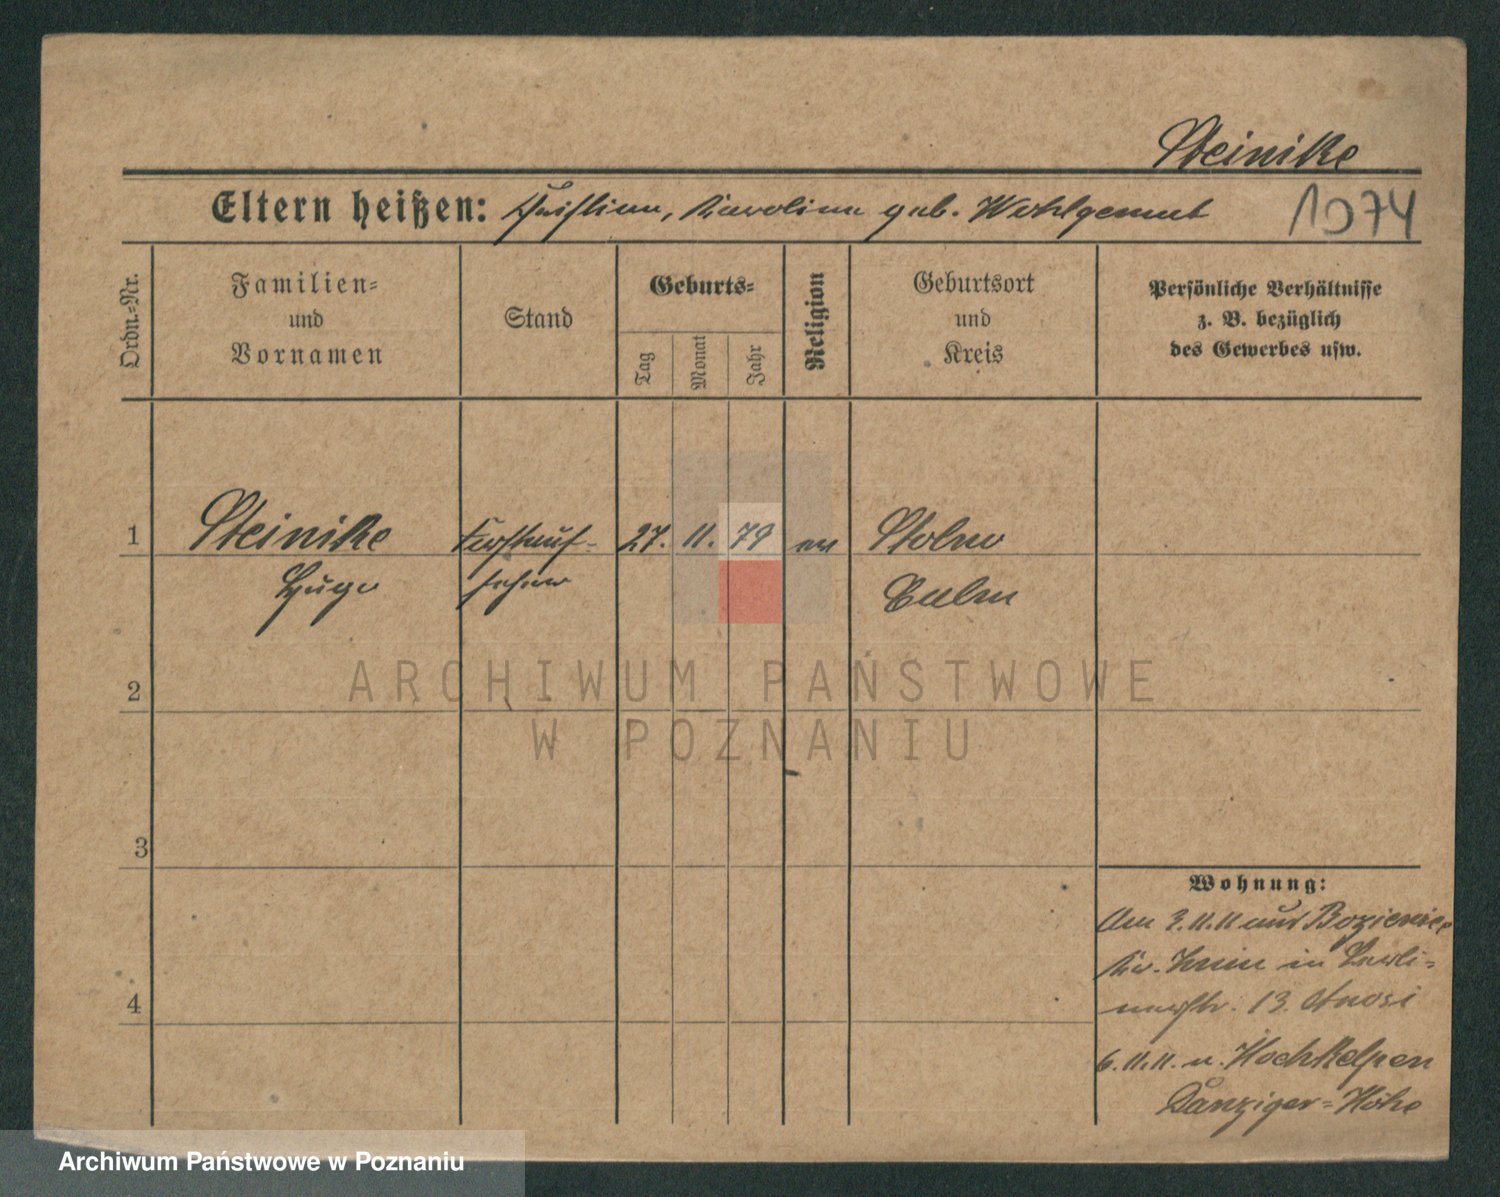 Steinike
Eltern heißen: Christian, Karoline geb. Wohlgemut
1074
Ordn.-Nr.
Familien-
und
Vornamen
Stand
Geburts-
Tag
Monat
Jahr
Religion
Geburtsort
und
Kreis
Persönliche Verhältnisse
z. B. bezüglich
des Gewerbes usw.
1
Steinike
Hugo
Forstauf-
seher
27. 11. 79
ev
Stolno
Culm
2
3
4
Wohnung:
Am 3.11.11 aus
Kr. in Berli-
nerstr. 13.
6.11.11. n. Hochkelpen
Danziger-Höhe
ARCHIWUM PAŃSTWOWE
W POZNANIU
Archiwum Państwowe w Poznaniu